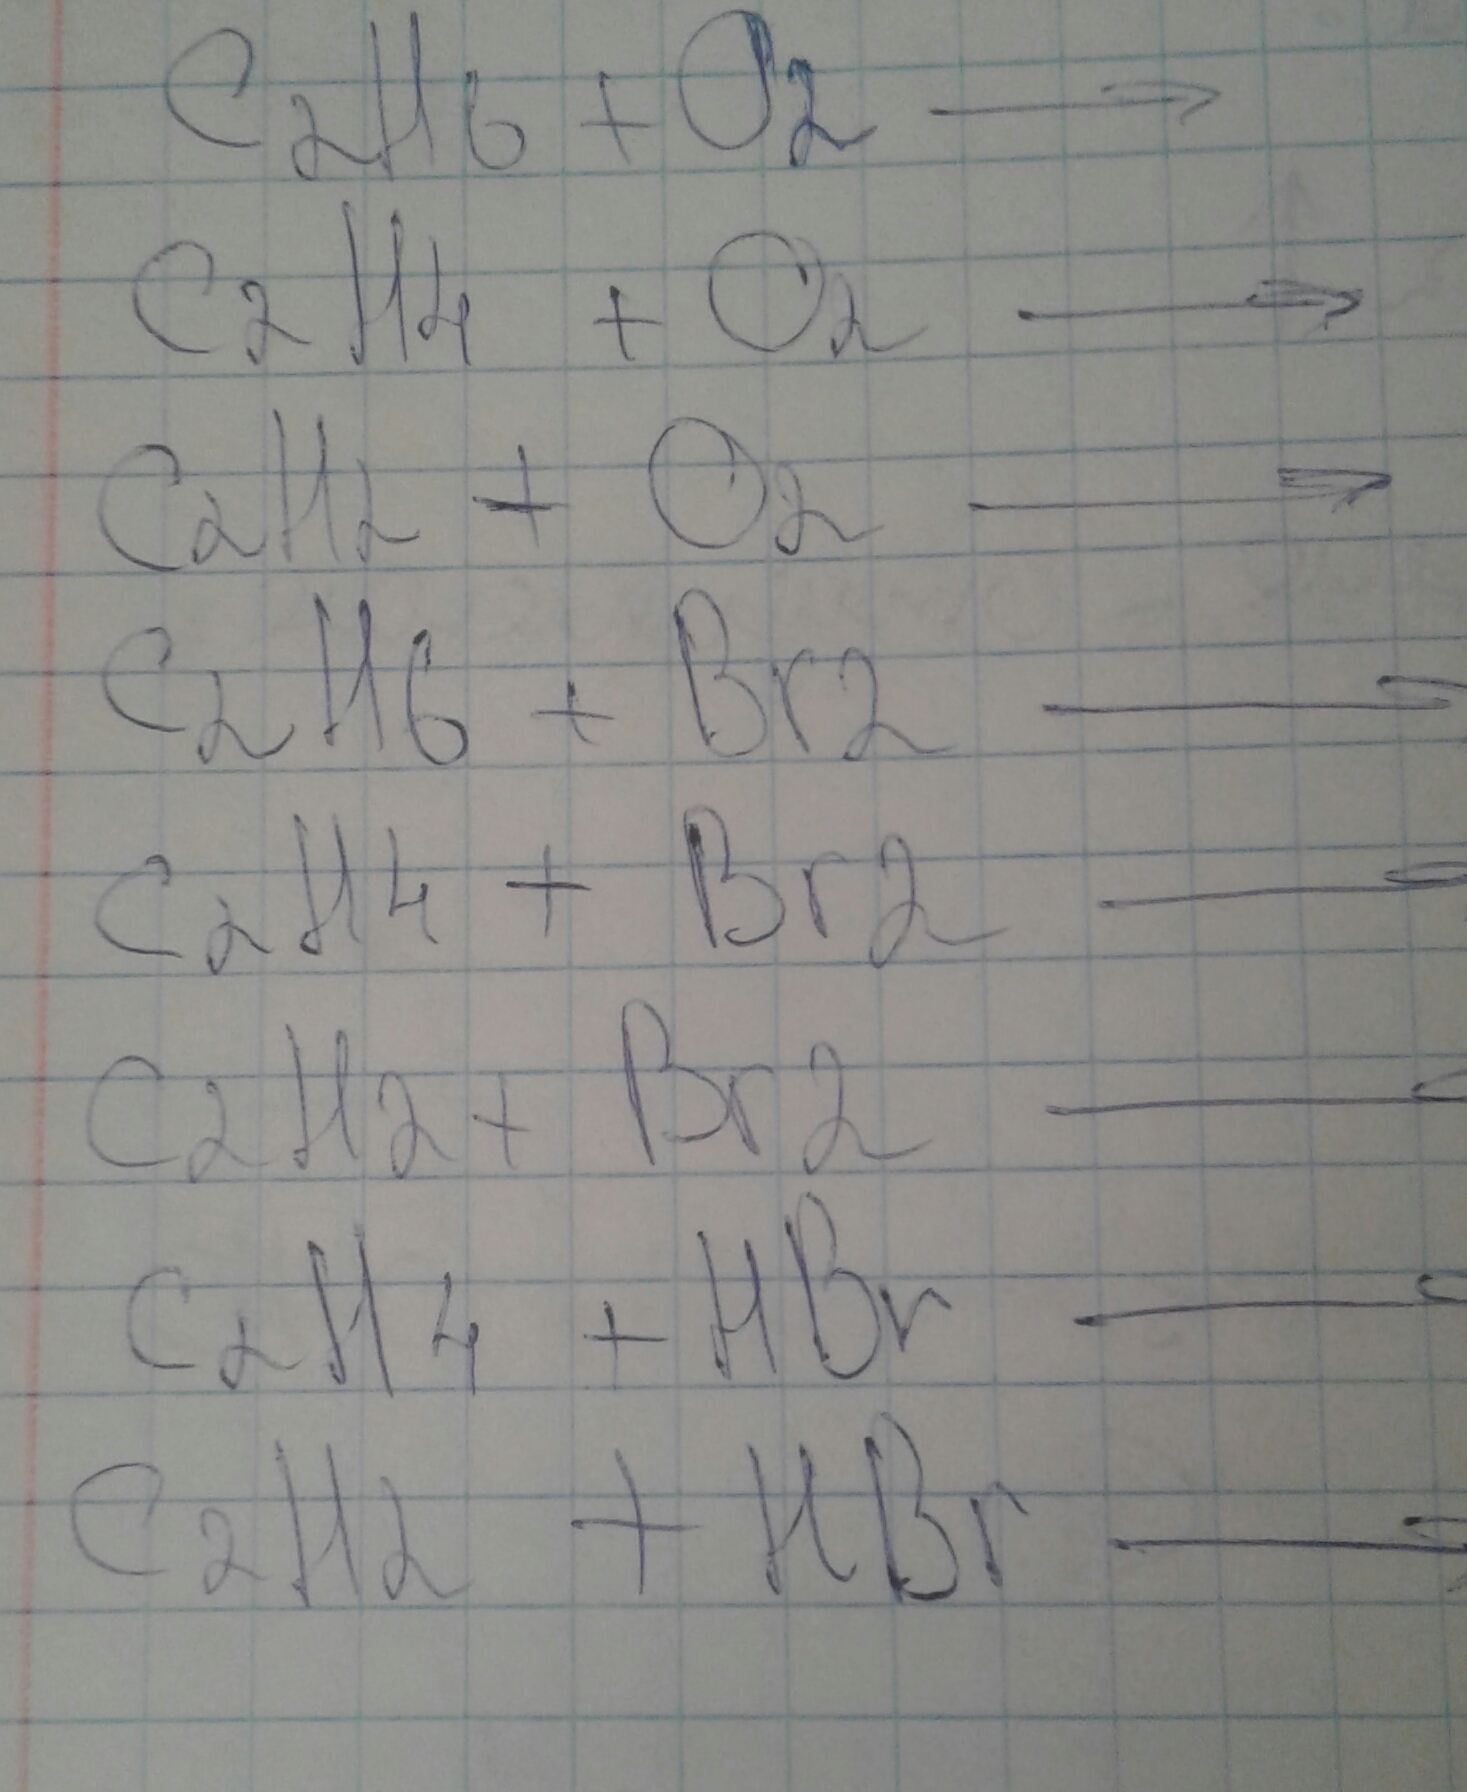 C2H6 + O2 →
C2H4 + O2 →
C2H2 + O2 →
C2H6 + Br2 →
C2H4 + Br2 →
C2H2 + Br2 →
C2H4 + HBr →
C2H2 + HBr →